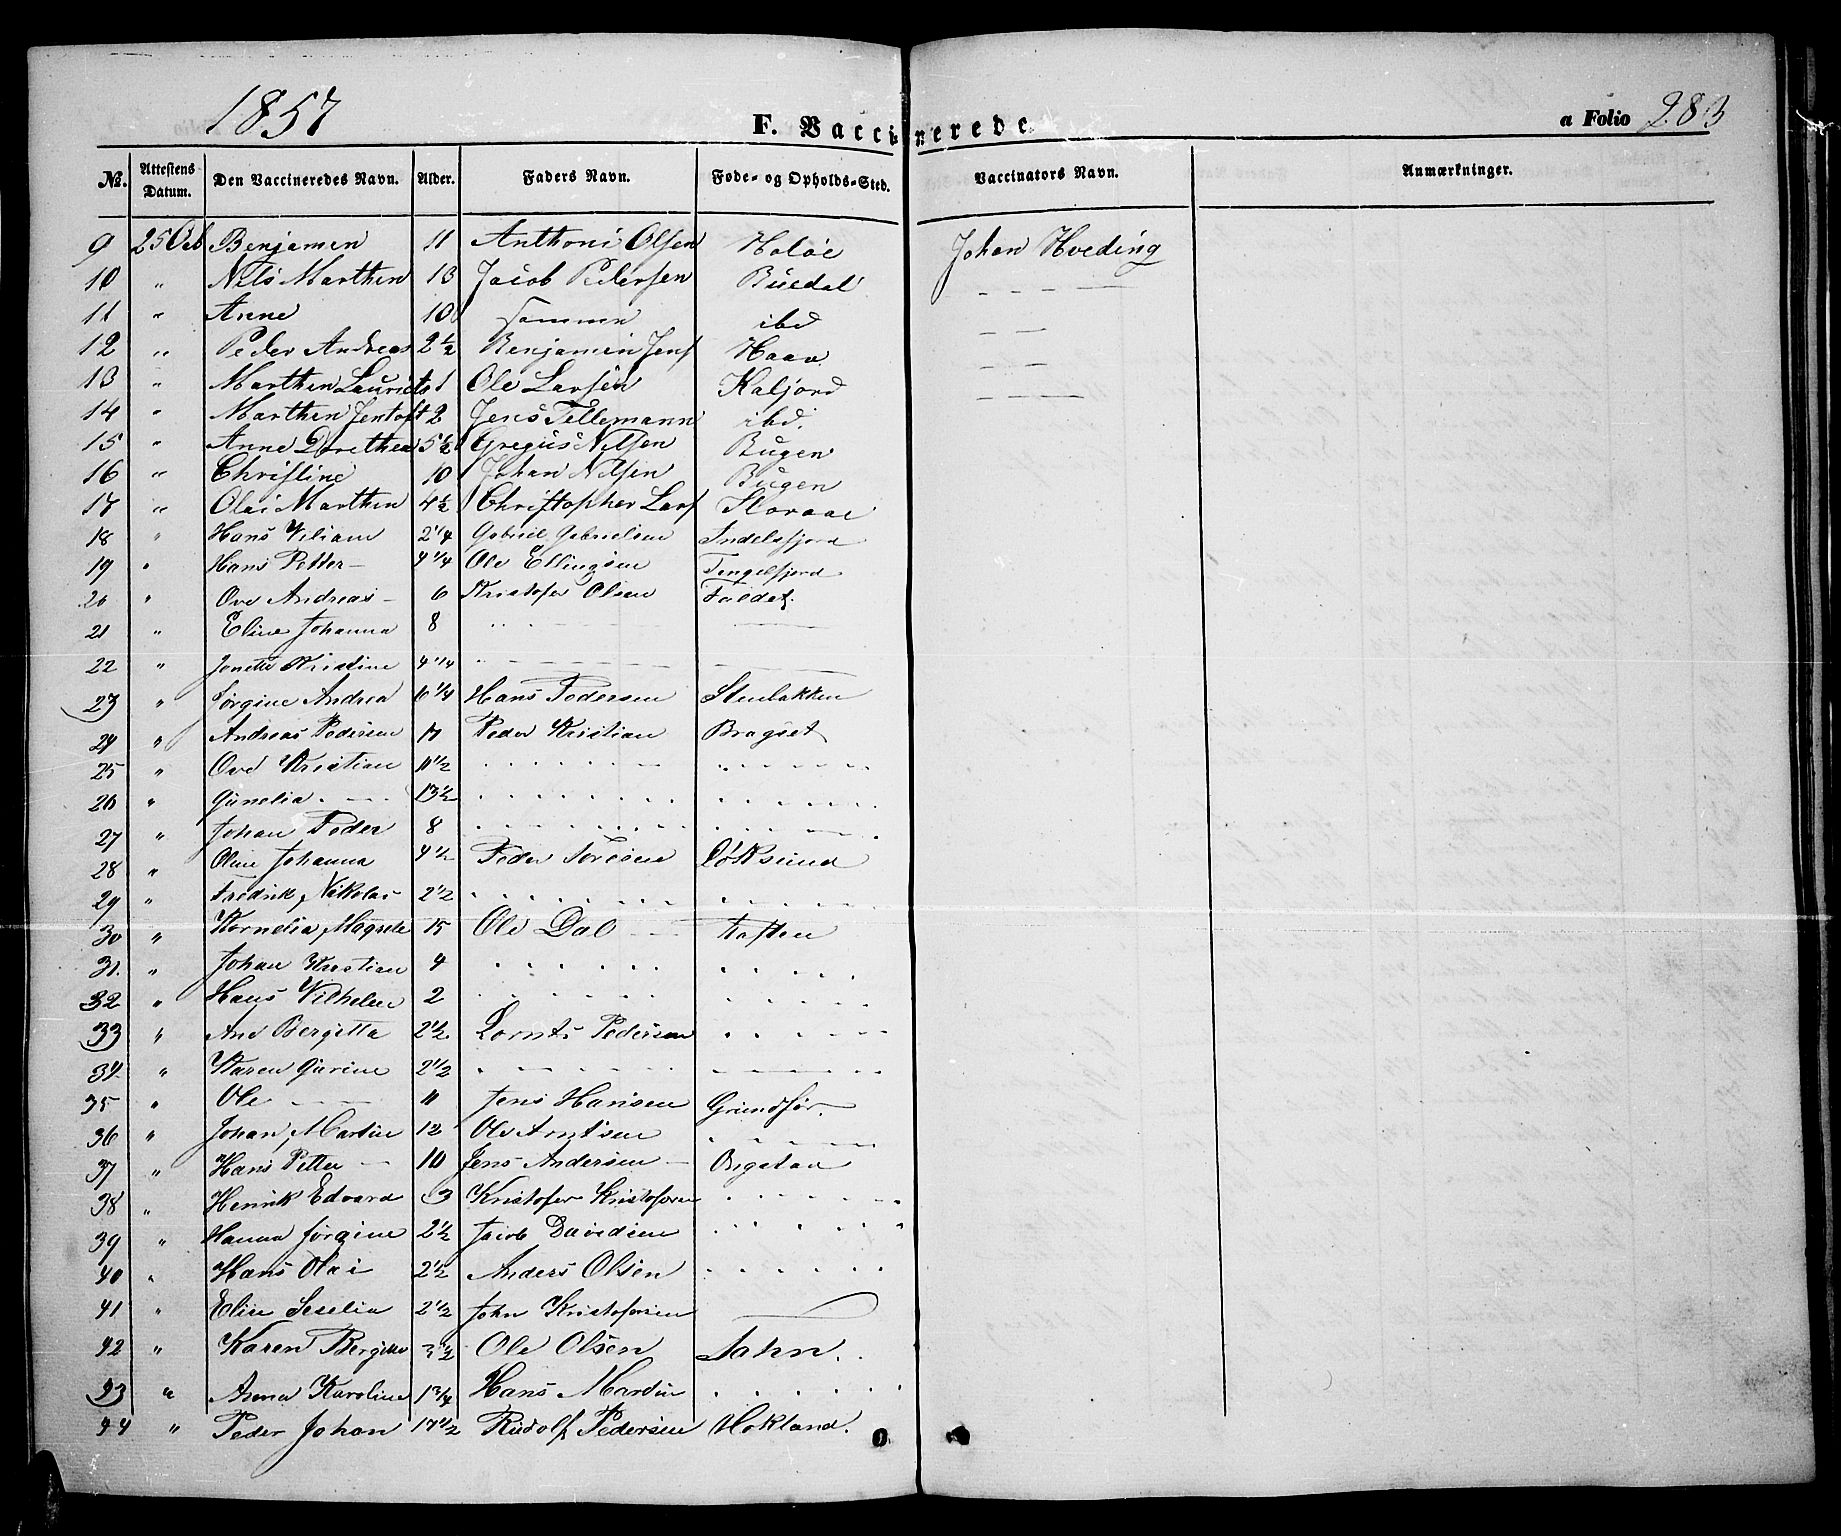 1857
F. Vaccinerede
a Folio 283
No. Attestens Datum. Den Vaccineredes Navn. Alder. Faders Navn. Føde- og Opholds-Sted. Vaccinators Navn. Anmærkninger.
9 25 Oct Benjamen 11 Anthoni Olsen Holøe Johan Hveding
10 " Nils Marthen 13 Jacob Pedersen Buedal — — — —
11 " Anne 10 Sammen ibd — —
12 " Peder Andreas 2 1/2 Benjamin Jens Haav — — —
13 " Marthen Laurits 1 Ole Larsen Kaljord — — —
14 " Marthen Jentoft 2 Jens Tellemann ibd. — — — —
15 " Anne Dorethea 5 1/2 Gregus Nilsen Bugen
16 " Christine 10 Johan Nilsen Bugen
17 " Olai Marthen 4 1/2 Christopher Lars
18 " Hans Viliam 2 1/4 Gabriel Gabrielsen Indelsfjord
19 " Hans Petter — 4 1/4 Ole Ellingsen Tengelfjord
20 " Ove Andreas — 6 Kristofer Olsen Faldet
21 " Eline Johanna 8 " — — — —
22 " Jonette Kristine 4 1/4 " — — — —
23 " Jørgine Andrea 6 1/4 Hans Pedersen Stenbakken
24 " Andreas Pedersen 17 Peder Kristian Bragset
25 " Ove Kristian 11 1/2 . . . . . . . . . .
26 " Gunelia . — 13 1/2 . . . . . . . . . .
27 " Johan Peder 8 . . . . . . . . . .
28 " Oline Johanna 4 1/2 Peder Sørensen Løksund
29 " Fredrik Nikolai 2 1/2 . . . . . . . . . .
30 " Kornelia Magrele 15 Ole Dal — Toften
31. " Johan Kristian 4 . . . . . . . . . .
32 " Hans Vilhelm 2 . . . . . . . . . .
33 " Ane Bergitta 2 1/2 Lornts Pedersen . . . . .
34 " Karen Gurine 2 1/2 — — — — — — — —
35 " Ole — — 11 Jens Hansen Grundfør.
36 " Johan Martin 12 Ole Arntsen . . . . .
37 " Hans Petter — 10 Jens Andersen — Ongstad
38 " Henrik Edvard 3 Kristofer Kristofersen . . . . .
39 " Hanna Jørgine 2 1/2 Jacob Davidsen . . . . .
40 " Hans Olai 2 1/2 Anders Olsen . . . . .
41 " Elise Seselia 2 1/2 John Kristofersen —
42 " Karen Bergitte 3 1/2 Ole Olsen Sahn.
23 " Anna Karoline 1 3/4 Hans Martin . . . . .
44 " Peder Johan 17 1/2 Rudolf Pedersen Hokland.